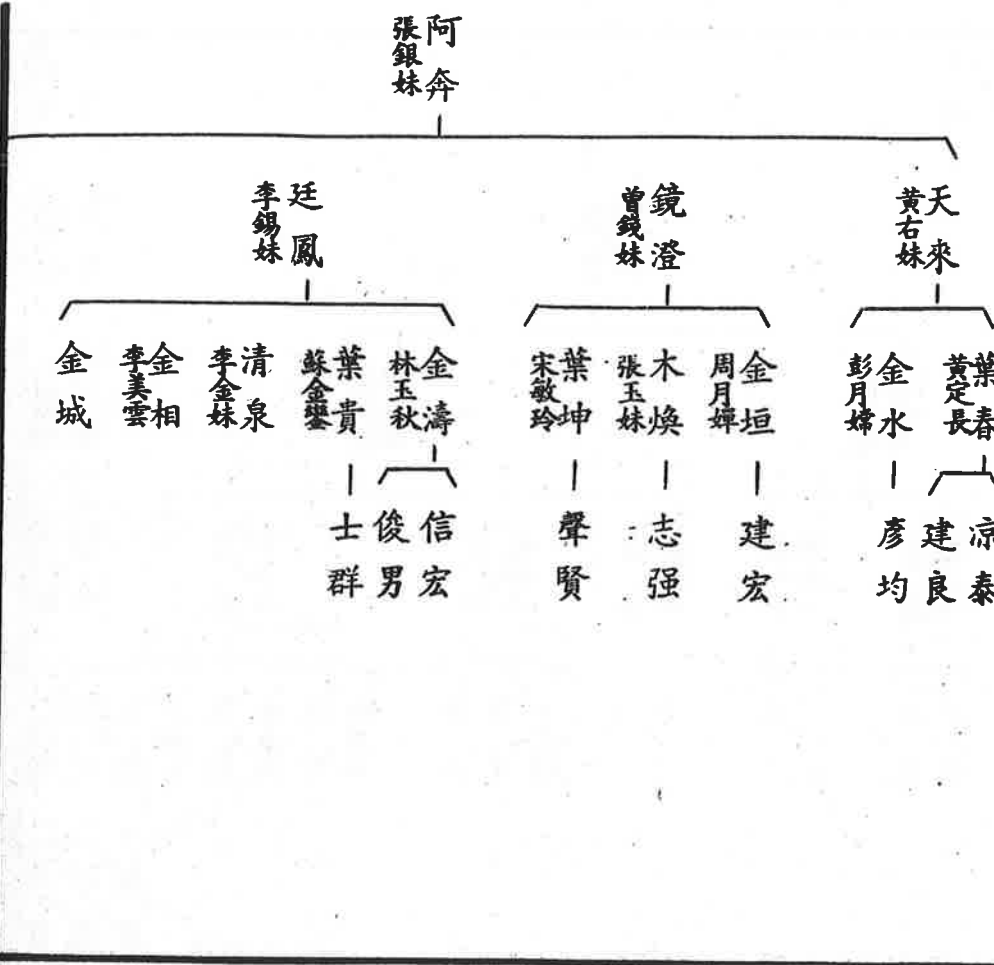 阿奔
張銀妹
天來
黃右妹
鏡澄
曾錢妹
廷鳳
李錫妹
葉春
黃定長
金水
彭月嫦
金垣
周月嬋
木煥
張玉妹
葉坤
宋敏玲
金濤
林玉秋
葉貴
蘇金鑾
清泉
李金妹
金相
李美雲
金城
凉泰
建良
彥均
建宏
志强
聲賢
信宏
俊男
士群